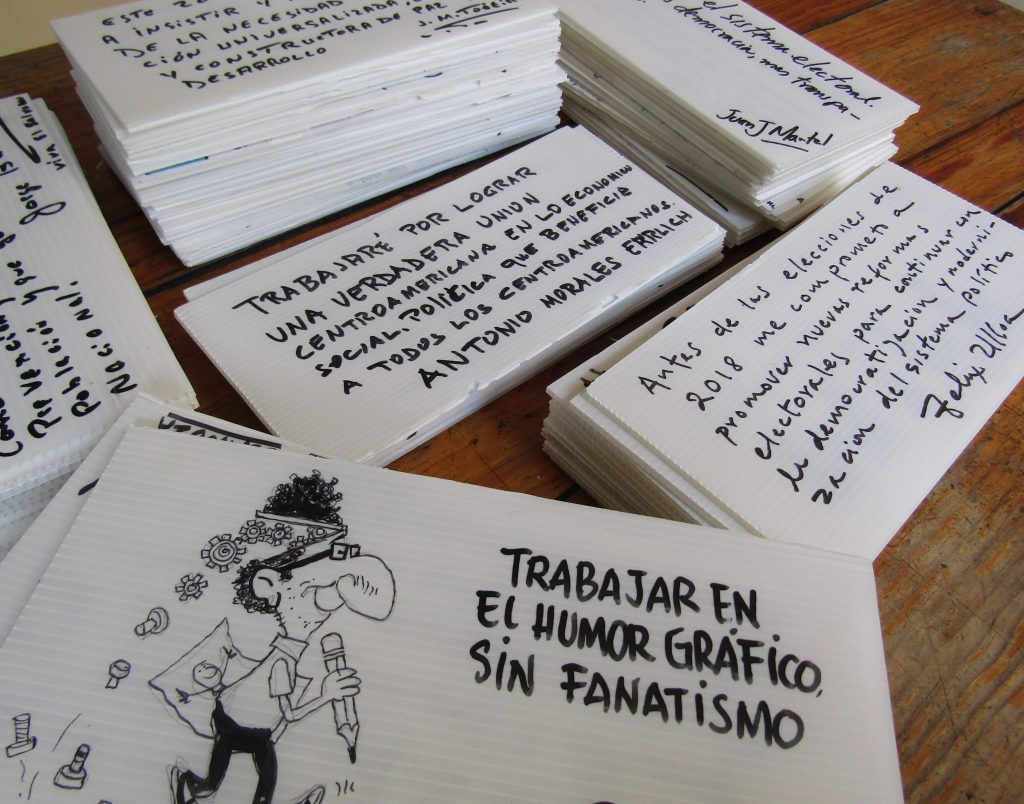 ESTE 20
A INSISTIR Y
DE LA NECESIDAD
CIÓN UNIVERSALIZADA
Y CONSTRUCTORA DE PAZ
DESARROLLO
el sistema electoral.
democracia, mas transpa-
Juan J Martel
viva El
Jorge
y que
Población
Nacional.
TRABAJARÉ POR LOGRAR
UNA VERDADERA UNION
CENTROAMERICANA EN LO ECONOMICO
SOCIAL. POLITICA QUE BENEFICIE
A TODOS LOS CENTROAMERICANOS.
ANTONIO MORALES ERRLICH
Antes de las elecciones de
2018 me comprometo a
promover nuevas reformas
electorales para continuar en
la democratización y moderni-
zación del sistema político
Felix Ulloa
TRABAJAR EN
EL HUMOR GRÁFICO,
SIN FANATISMO